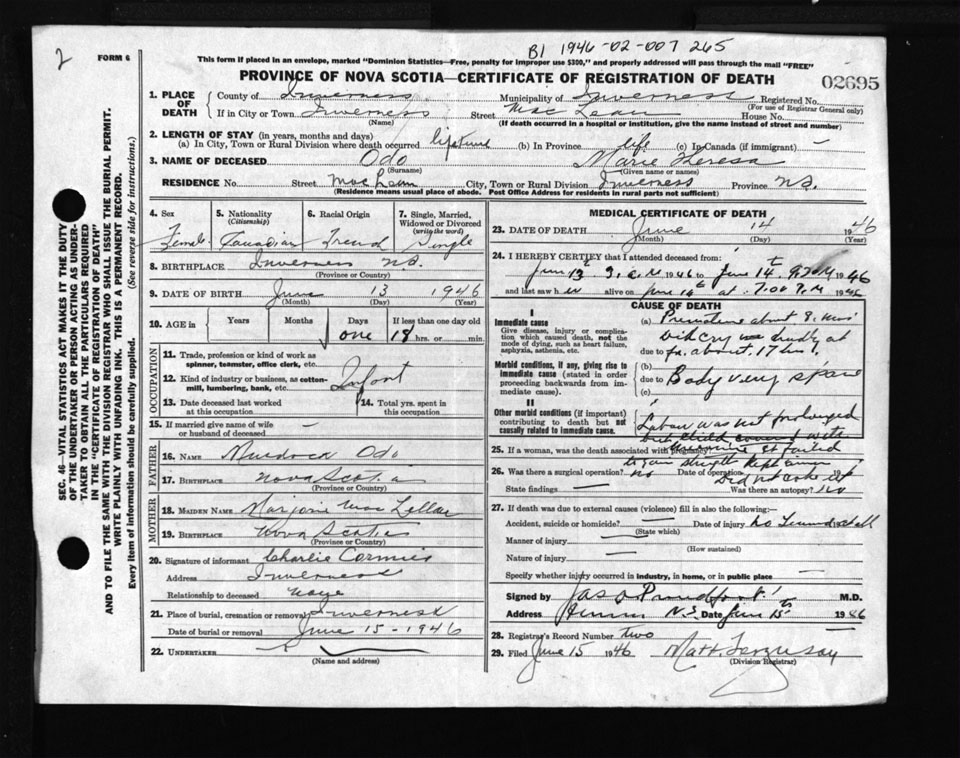 2
FORM 6
B1 1946-02-007 265
This form if placed in an envelope, marked "Dominion Statistics—Free, penalty for improper use $300," and properly addressed will pass through the mail "FREE"
PROVINCE OF NOVA SCOTIA—CERTIFICATE OF REGISTRATION OF DEATH
02695
SEC. 46—VITAL STATISTICS ACT MAKES IT THE DUTY
OF THE UNDERTAKER OR PERSON ACTING AS UNDER-
TAKER TO OBTAIN ALL THE PARTICULARS REQUIRED
IN THE "CERTIFICATE OF REGISTRATION OF DEATH"
AND TO FILE THE SAME WITH THE DIVISION REGISTRAR WHO SHALL ISSUE THE BURIAL PERMIT.
WRITE PLAINLY WITH UNFADING INK. THIS IS A PERMANENT RECORD.
Every item of information should be carefully supplied. (See reverse side for instructions.)
1. PLACE OF DEATH
County of Inverness Municipality of Inverness Registered No.
(For use of Registrar General only)
If in City or Town Inverness Street MacLean House No.
(Name) (If death occurred in a hospital or institution, give the name instead of street and number)
2. LENGTH OF STAY (in years, months and days)
(a) In City, Town or Rural Division where death occurred lifetime (b) In Province life (c) In Canada (if immigrant) —
3. NAME OF DECEASED Odo Marie Theresa
(Surname) (Given name or names)
RESIDENCE No. Street MacLean City, Town or Rural Division Inverness Province N.S.
(Residence means usual place of abode. Post Office Address for residents in rural parts not sufficient)
4. Sex
Female
5. Nationality
(Citizenship)
Canadian
6. Racial Origin
French
7. Single, Married,
Widowed or Divorced
(write the word)
Single
8. BIRTHPLACE Inverness N.S.
(Province or County)
9. DATE OF BIRTH June 13 1946
(Month) (Day) (Year)
10. AGE in
Years Months Days If less than one day old
one 18 hrs. or min.
OCCUPATION
11. Trade, profession or kind of work as
spinner, teamster, office clerk, etc.
12. Kind of industry or business, as cotton-
mill, lumbering, bank, etc. Infant
13. Date deceased last worked
at this occupation
14. Total yrs. spent in
this occupation
15. If married give name of wife
or husband of deceased —
FATHER
16. Name Murdock Odo
17. Birthplace Nova Scotia
(Province or County)
MOTHER
18. MAIDEN NAME Marjorie MacLellan
19. BIRTHPLACE Nova Scotia
(Province or County)
20. Signature of informant Charlie Cormier
Address Inverness
Relationship to deceased None
21. Place of burial, cremation or removal Inverness
Date of burial or removal June 15-1946
22. UNDERTAKER
(Name and address)
MEDICAL CERTIFICATE OF DEATH
23. DATE OF DEATH June 14 1946
(Month) (Day) (Year)
24. I HEREBY CERTIFY that I attended deceased from:
June 13 1946 to June 14th 1946
and last saw h alive on June 14th at 7.00 P.M 1946
CAUSE OF DEATH
I
Immediate cause
Give disease, injury or complica-
tion which caused death, not the
mode of dying, such as heart failure,
asphyxia, asthenia, etc.
(a) Premature about 8 mos
did cry
due to about 17 hrs.
Morbid conditions, if any, giving rise to
immediate cause (stated in order
proceeding backwards from im-
mediate cause).
(b)
due to Body very
(c)
II
Other morbid conditions (if important)
contributing to death but not
causally related to immediate cause.
Labour was not prolonged
but child covered with
25. If a woman, was the death associated with pregnancy? It failed
to gain strength
26. Was there a surgical operation? No Date of operation 194
Did not
State findings — Was there an autopsy? No
27. If death was due to external causes (violence) fill in also the following:—
Accident, suicide or homicide? — Date of injury
(State which)
Manner of injury
(How sustained)
Nature of injury —
Specify whether injury occurred in industry, in home, or in public place —
Signed by Jas. Proudfoot M.D.
Address N.S. Date June 15th 1946
28. Registrar's Record Number two
29. Filed June 15 1946 Matt. Ferguson
(Division Registrar)